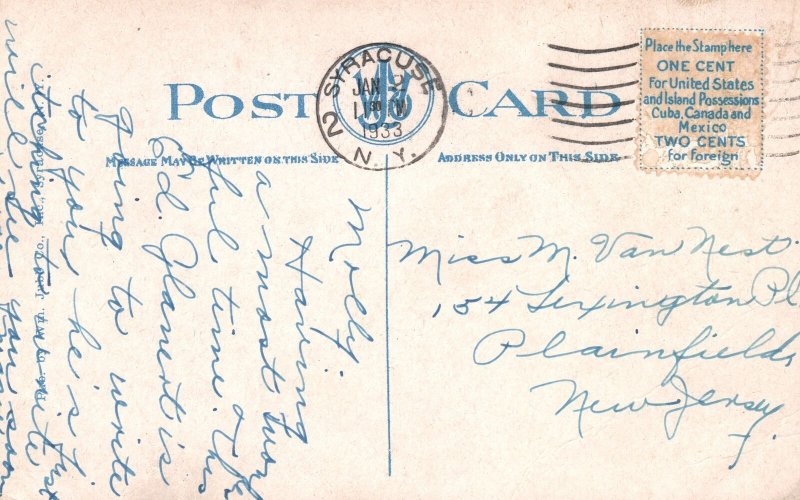 POST CARD
SYRACUSE
JAN 2
1933
N. Y.
2
Place the Stamp here
ONE CENT
For United States
and Island Possessions
Cuba, Canada and
Mexico
TWO CENTS
for foreign
MESSAGE MAY BE WRITTEN ON THIS SIDE
ADDRESS ONLY ON THIS SIDE
Molly:
Having
a most
ful time. This
Ed. Glanert is
going to write
to you he's just
itching to write
will see you soon
Miss M. Van Nest
154 Lexington Pl
Plainfield
New Jersey